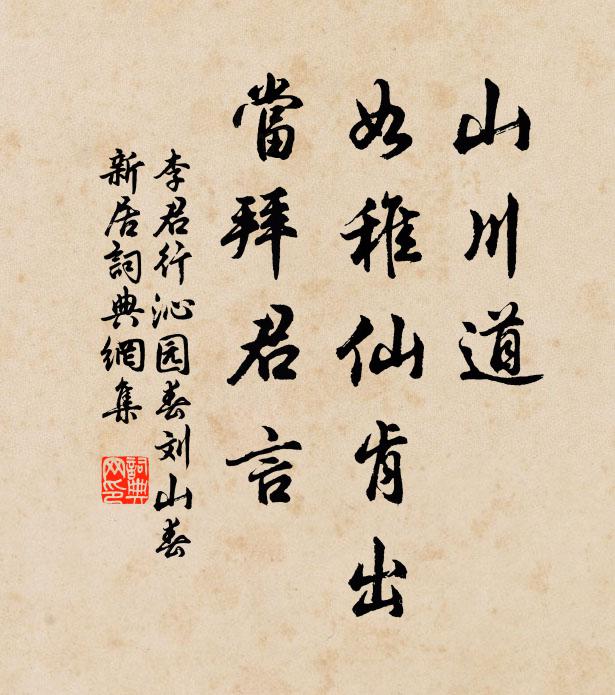 山川道
如稚仙肯出
當拜君言
李君行沁园春刘山春
新居詞典網集
詞典
网印